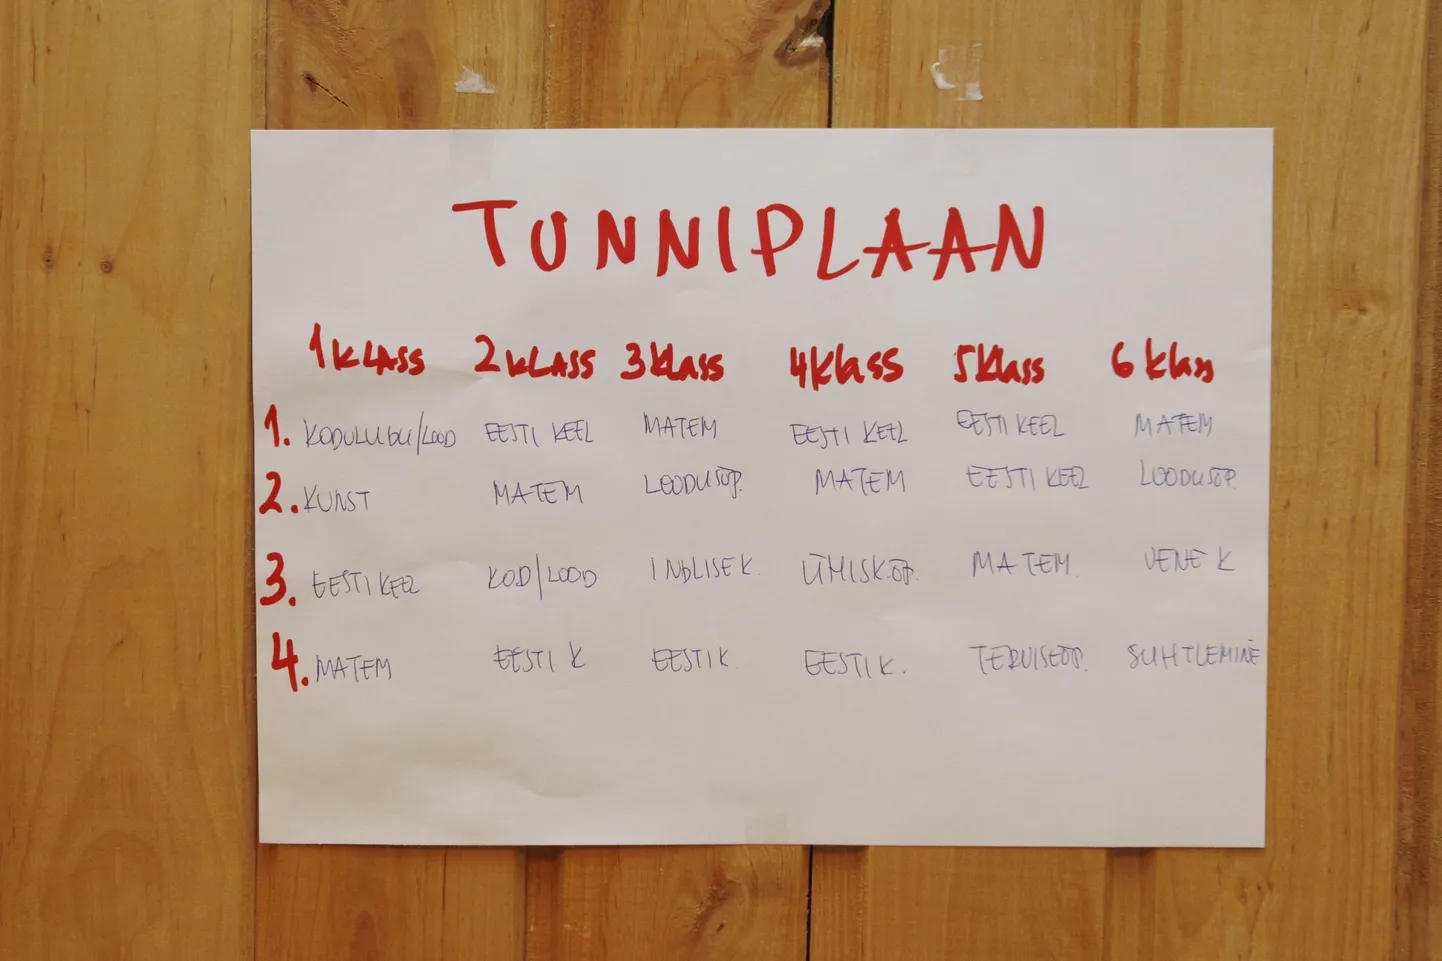 TUNNIPLAAN
1 KLASS 2 KLASS 3 Klass 4 Klass 5 Klass 6 Klass
1. KODULUGU/LOOD EESTI KEEL MATEM EESTI KEEL EESTI KEEL MATEM
2. KUNST MATEM LOODUSÕP. MATEM EESTI KEEL LOODUSÕP.
3. EESTI KEEL KOD/LOOD INGLISE K. ÜHISK.ÕP. MATEM. VENE K
4. MATEM EESTI K EESTI K. EESTI K. TERVISEÕP. SUHTLEMINE